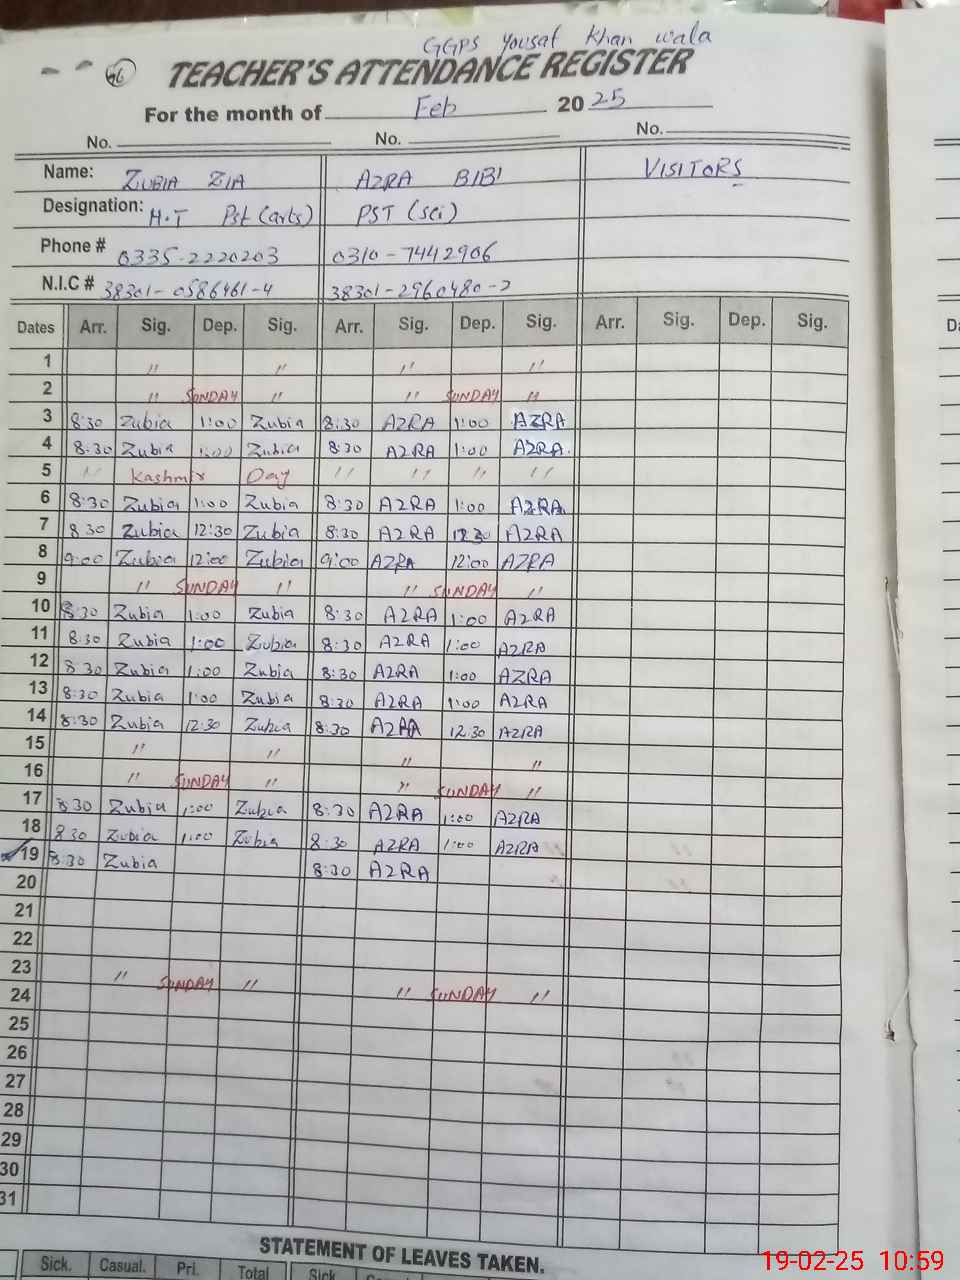 GGPS Yousaf Khan wala
56 TEACHER'S ATTENDANCE REGISTER
For the month of Feb 2025
No. No. No.
Name: ZUBIA ZIA AZRA BIBI VISITORS
Designation: H.T Pst (arts) PST (sci)
Phone # 0335-2220203 0310-7442906
N.I.C # 38301-0586461-4 38301-2960480-2
Dates Arr. Sig. Dep. Sig. Arr. Sig. Dep. Sig. Arr. Sig. Dep. Sig.
1 " " " "
2 " SUNDAY " " SUNDAY "
3 8:30 Zubia 1:00 Zubia 8:30 AZRA 1:00 AZRA
4 8:30 Zubia 1:00 Zubia 8:30 AZRA 1:00 AZRA.
5 " Kashmir Day " " " "
6 8:30 Zubia 1:00 Zubia 8:30 AZRA 1:00 AZRA
7 8 30 Zubia 12:30 Zubia 8:30 AZRA 12 30 AZRA
8 9:00 Zubia 12:00 Zubia 9:00 AZRA 12:00 AZRA
9 " SUNDAY " " SUNDAY "
10 8:30 Zubia 1:00 Zubia 8:30 AZRA 1:00 AZRA
11 8:30 Zubia 1:00 Zubia 8:30 AZRA 1:00 AZRA
12 8 30 Zubia 1:00 Zubia 8:30 AZRA 1:00 AZRA
13 8:30 Zubia 1:00 Zubia 8:30 AZRA 1:00 AZRA
14 8:30 Zubia 12:30 Zubia 8:30 AZRA 12:30 AZRA
15 " " " "
16 " SUNDAY " " SUNDAY "
17 8 30 Zubia 1:00 Zubia 8:30 AZRA 1:00 AZRA
18 8 30 Zubia 1:00 Zubia 8:30 AZRA 1:00 AZRA
19 8:30 Zubia 8:30 AZRA
20
21
22
23 " SUNDAY " " SUNDAY "
24
25
26
27
28
29
30
31
STATEMENT OF LEAVES TAKEN.
Sick. Casual. Pri. Total Sick
19-02-25 10:59